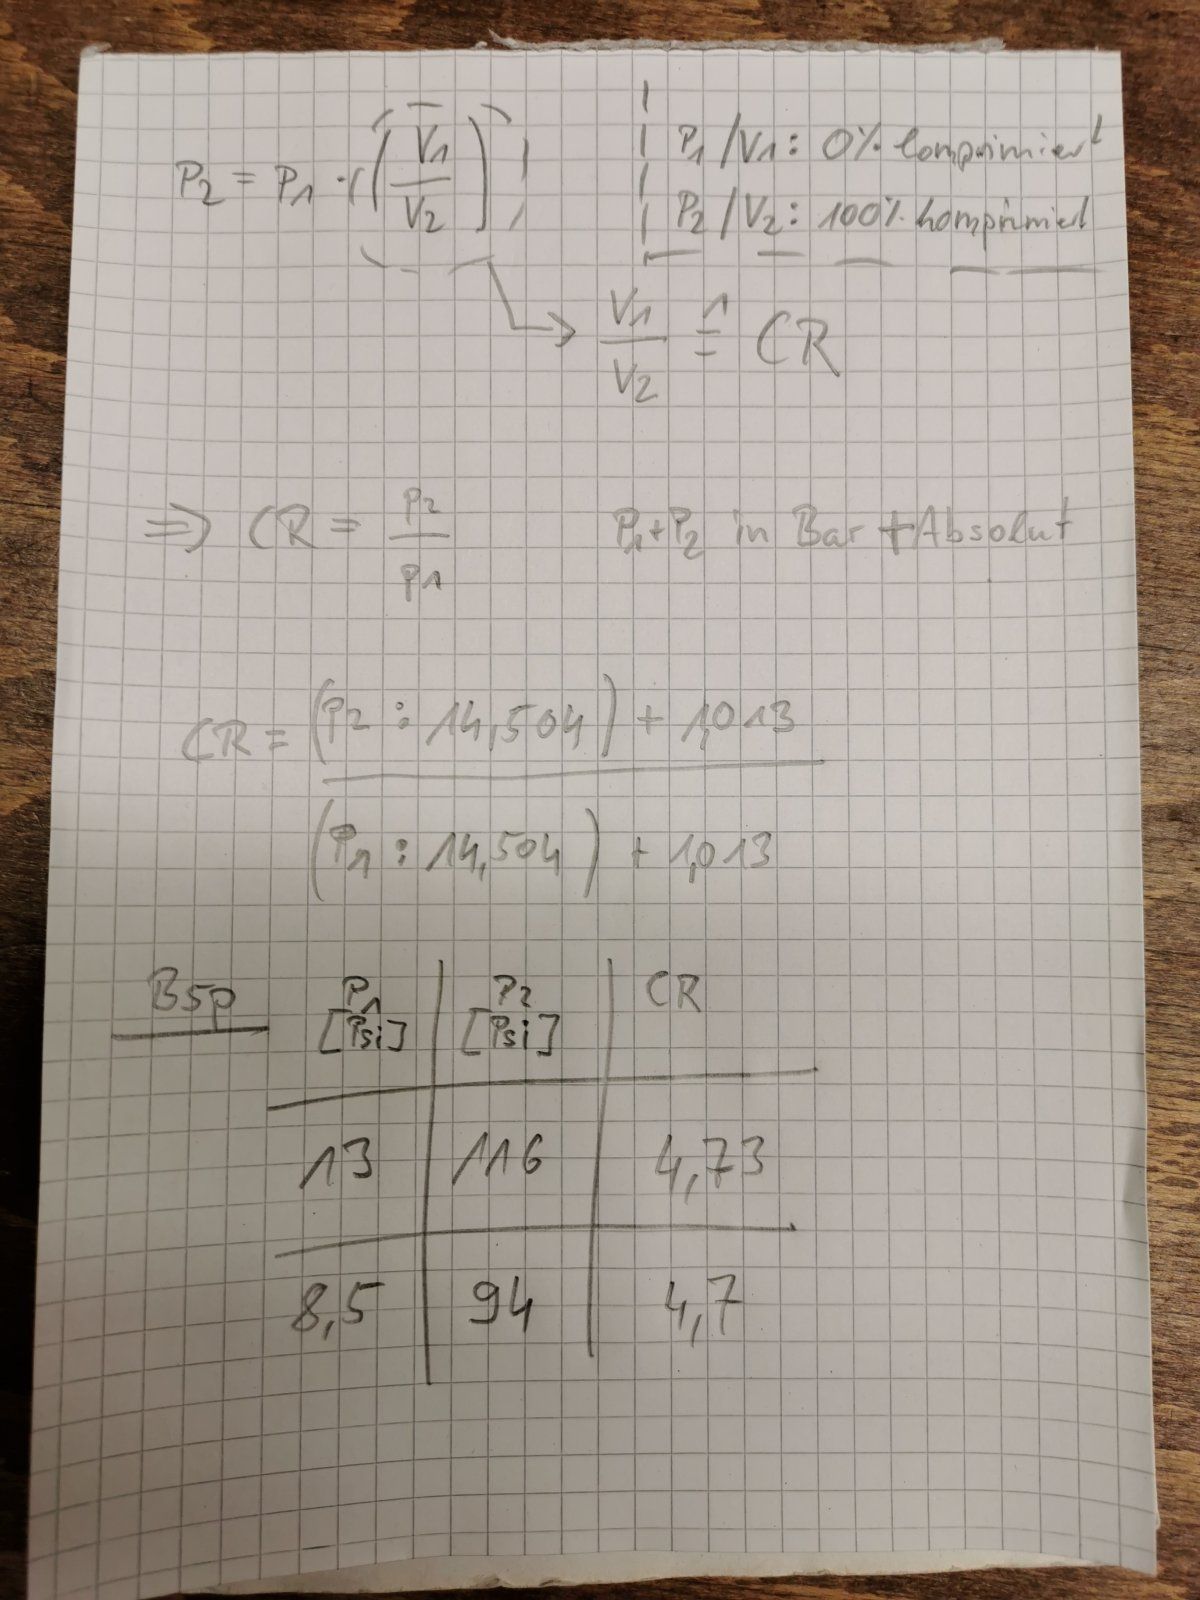 P2 = P1 · ( V1 / V2 )
P1 / V1 : 0% komprimiert
P2 / V2 : 100% komprimiert
V1 / V2 ≙ CR
=> CR = P2 / P1
P1+P2 in Bar + Absolut
CR = (P2 : 14,504) + 1,013
(P1 : 14,504) + 1,013
Bsp P1 [Psi] P2 [Psi] CR
13 116 4,73
8,5 94 4,7